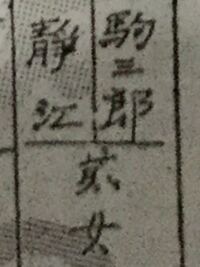 駒三郎
静江
女